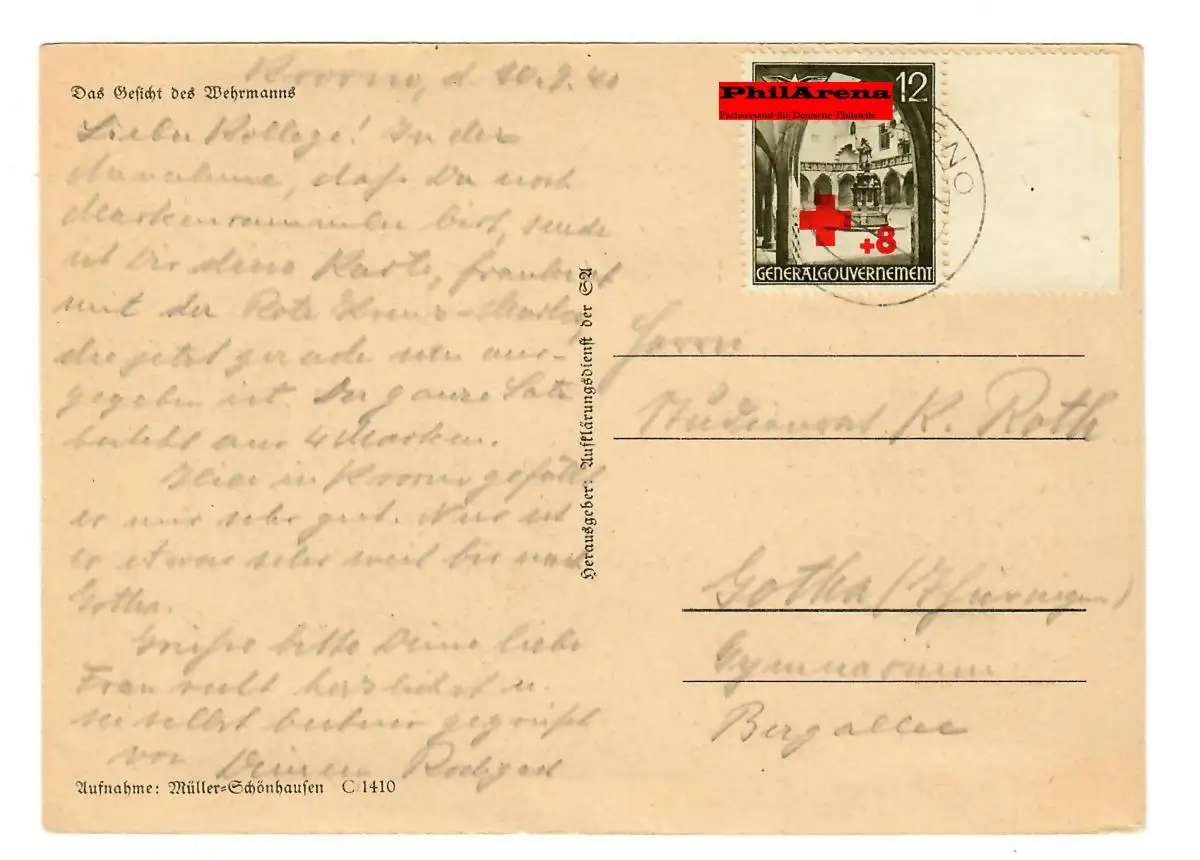 Das Gesicht des Wehrmanns
Krosno, d. 10.9.40
Lieber Kollege! In der
Annahme, daß Du noch
Markensammler bist, sende
ich Dir diese Karte, frankiert
mit der Rote Kreuz-Marke,
die jetzt gerade neu aus-
gegeben ist. Der ganze Satz
besteht aus 4 Marken.
Hier in Krosno gefällt
es mir sehr gut. Nur ist
es etwas sehr weit bis nach
Gotha.
Grüße bitte Deine liebe
Frau recht herzlichst u.
sei selbst bestens gegrüßt
von Deinem
Aufnahme: Müller-Schönhausen C 1410
Herausgeber: Aufklärungsdienst der SA
PhilArena
Fachversand für Deutsche Philatelie
12
+8
GENERALGOUVERNEMENT
NO
Herrn
Studienrat K. Roth
Gotha (Thüringen)
Gymnasium
Bergallee